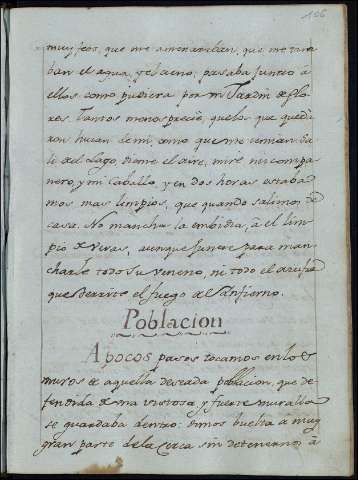 106
muy feos, que me amenazaban, que me tira
ban el agua, y el cieno: pasaba junto à
ellos como pudiera por mi Jardin de flo
res. Tantos menosprecié, que los que queda
ron huian de mi, como que me temian. Sa
li del Lago, diome el aire, miré mi compa
nero, y mi Caballo, y en dos horas estaba
mos mas limpios, que quando salimos de
casa. No mancha la embidia, à el lim
pio de veras, aunque junte para man
charle todo su veneno, ni todo el azufre
que derrite el fuego de el Infierno.
Poblacion
A pocos pasos tocamos en los
muros de aquella deseada poblacion, que de
fendida de una vistosa, y fuerte muralla
se guardaba dentro: dimos buelta à muy
gran parte de la Cerca sin detenernos à